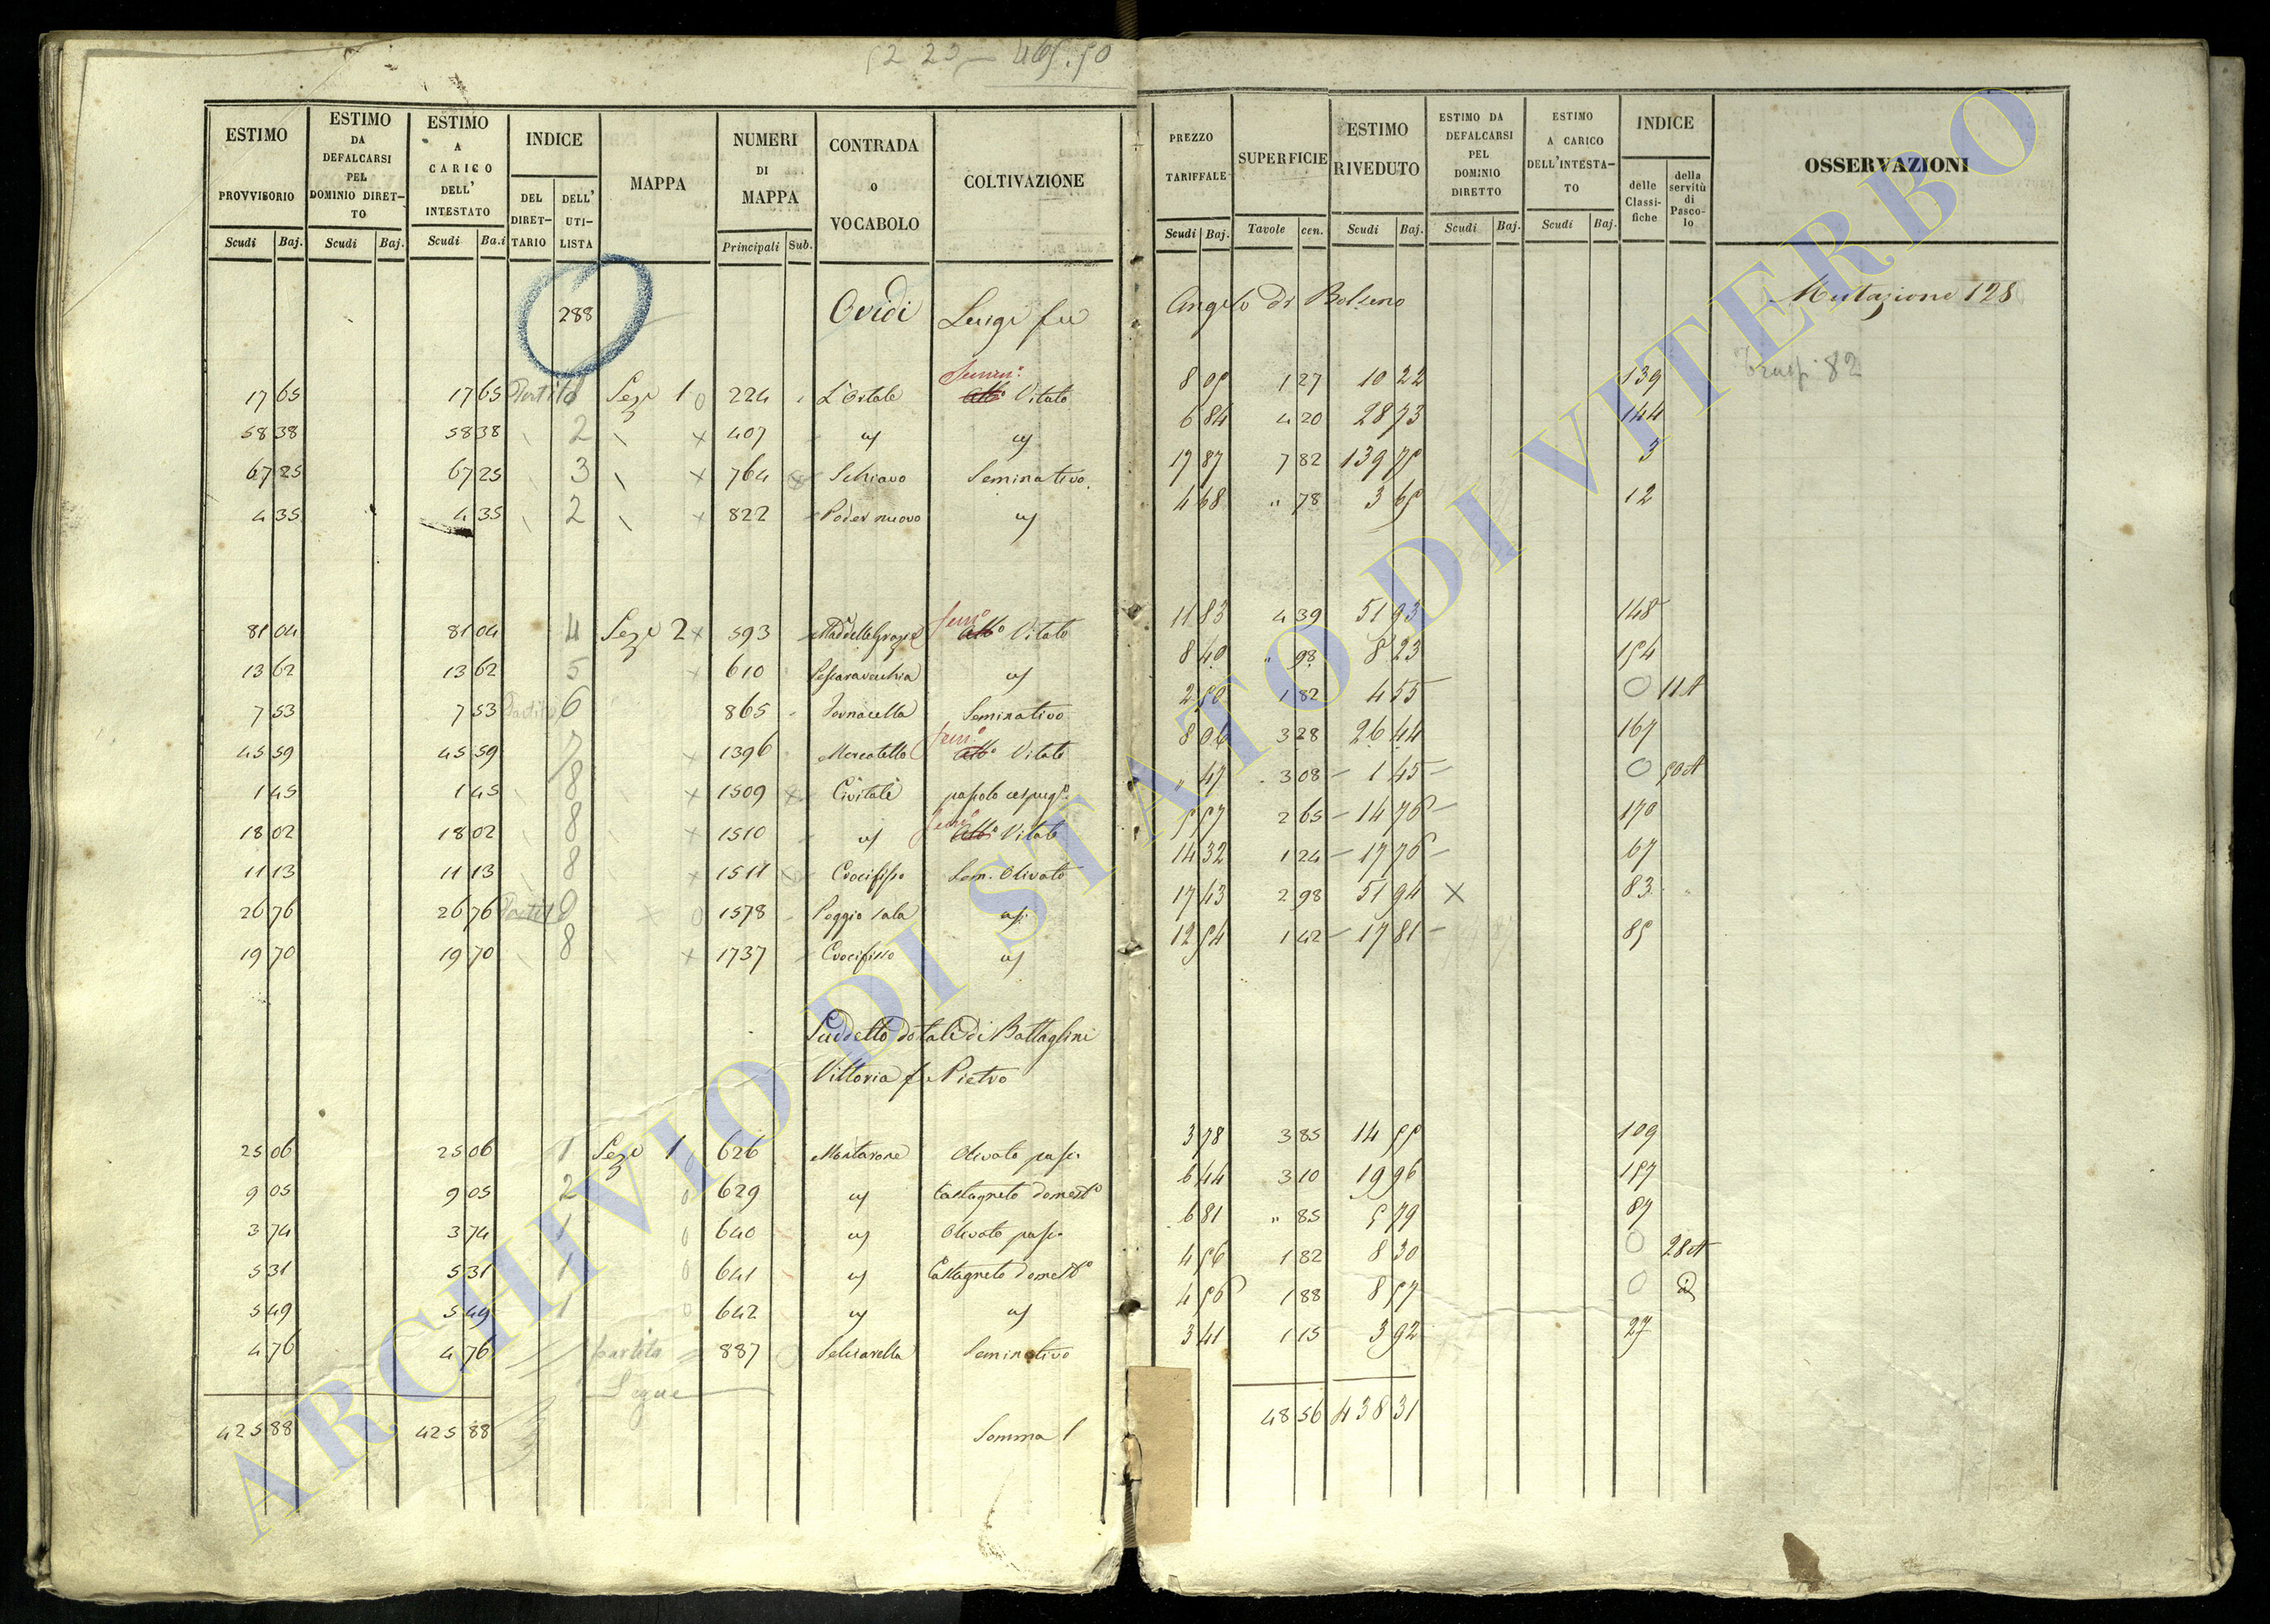 52 23 — 465.50
ESTIMO PROVVISORIO | ESTIMO DA DEFALCARSI PEL DOMINIO DIRETTO | ESTIMO A CARICO DELL' INTESTATO | INDICE | MAPPA | NUMERI DI MAPPA | CONTRADA o VOCABOLO | COLTIVAZIONE | PREZZO TARIFFALE | SUPERFICIE | ESTIMO RIVEDUTO | ESTIMO DA DEFALCARSI PEL DOMINIO DIRETTO | ESTIMO A CARICO DELL'INTESTATO | INDICE | OSSERVAZIONI
Scudi | Baj. | Scudi | Baj. | Scudi | Ba.i | DEL DIRETTARIO | DELL' UTILISTA | Principali | Sub. | Scudi | Baj. | Tavole | cen. | Scudi | Baj. | Scudi | Baj. | Scudi | Baj. | delle Classifiche | della servitù di Pascolo
288 Ovidi Luigi fu Angelo di Bolseno Mutazione 128
82
17 65 17 65 Partita 1 Seze 1 0 224 L'Ortale Semin: Vitato 8 05 1 27 10 22 139
58 38 58 38 2 x 407 " " 6 84 4 20 28 73 144
67 25 67 25 3 x 764 Schiavo Seminativo 17 87 7 82 139 75 3
4 35 4 35 2 x 822 Poder nuovo " 4 68 " 78 3 65 12
81 04 81 04 4 Seze 2 x 593 Mad delle Grazie Semo Vitato 11 83 4 39 51 93 148
13 62 13 62 5 x 610 Pescaravecchia " 8 40 " 98 8 23 154
7 53 7 53 Partita 6 865 Fornacella Seminativo 2 50 1 82 4 55 0 11 A
45 59 45 59 7 x 1396 Mercatello Semo Vitato 8 06 3 28 26 44 167
1 45 1 45 8 x 1509 x Civitale pascolo cespugo " 47 3 08 — 1 45 — 0 50 A
18 02 18 02 8 x 1510 " Semo Vitato 5 57 2 65 — 14 76 — 170
11 13 11 13 8 x 1511 Crocifisso Sem. Olivato 14 32 1 24 — 17 76 — 67
26 76 26 76 Partita 9 x 0 1578 Poggio sala " 17 43 2 98 51 94 x 83
19 70 19 70 8 x 1737 Crocifisso " 12 54 1 42 — 17 81 — 85
Suddetto dotali di Battaglini
Vittoria fu Pietro
25 06 25 06 1 Seze 1 0 626 Montarone Olivato pasc 3 78 3 85 14 55 109
9 05 9 05 2 0 629 " Castagneto domesto 6 44 3 10 19 96 157
3 74 3 74 1 0 640 " Olivato pasc 6 81 " 85 5 79 87
5 31 5 31 1 0 641 " Castagneto domesto 4 56 1 82 8 30 0 28 A
5 49 5 49 1 0 642 " " 4 56 1 88 8 57 0 id
4 76 4 76 partita 887 Selciarella Seminativo 3 41 1 15 3 92 27
Segue
425 88 425 88 Somma 1 48 56 438 31
ARCHIVIO DI STATO DI VITERBO